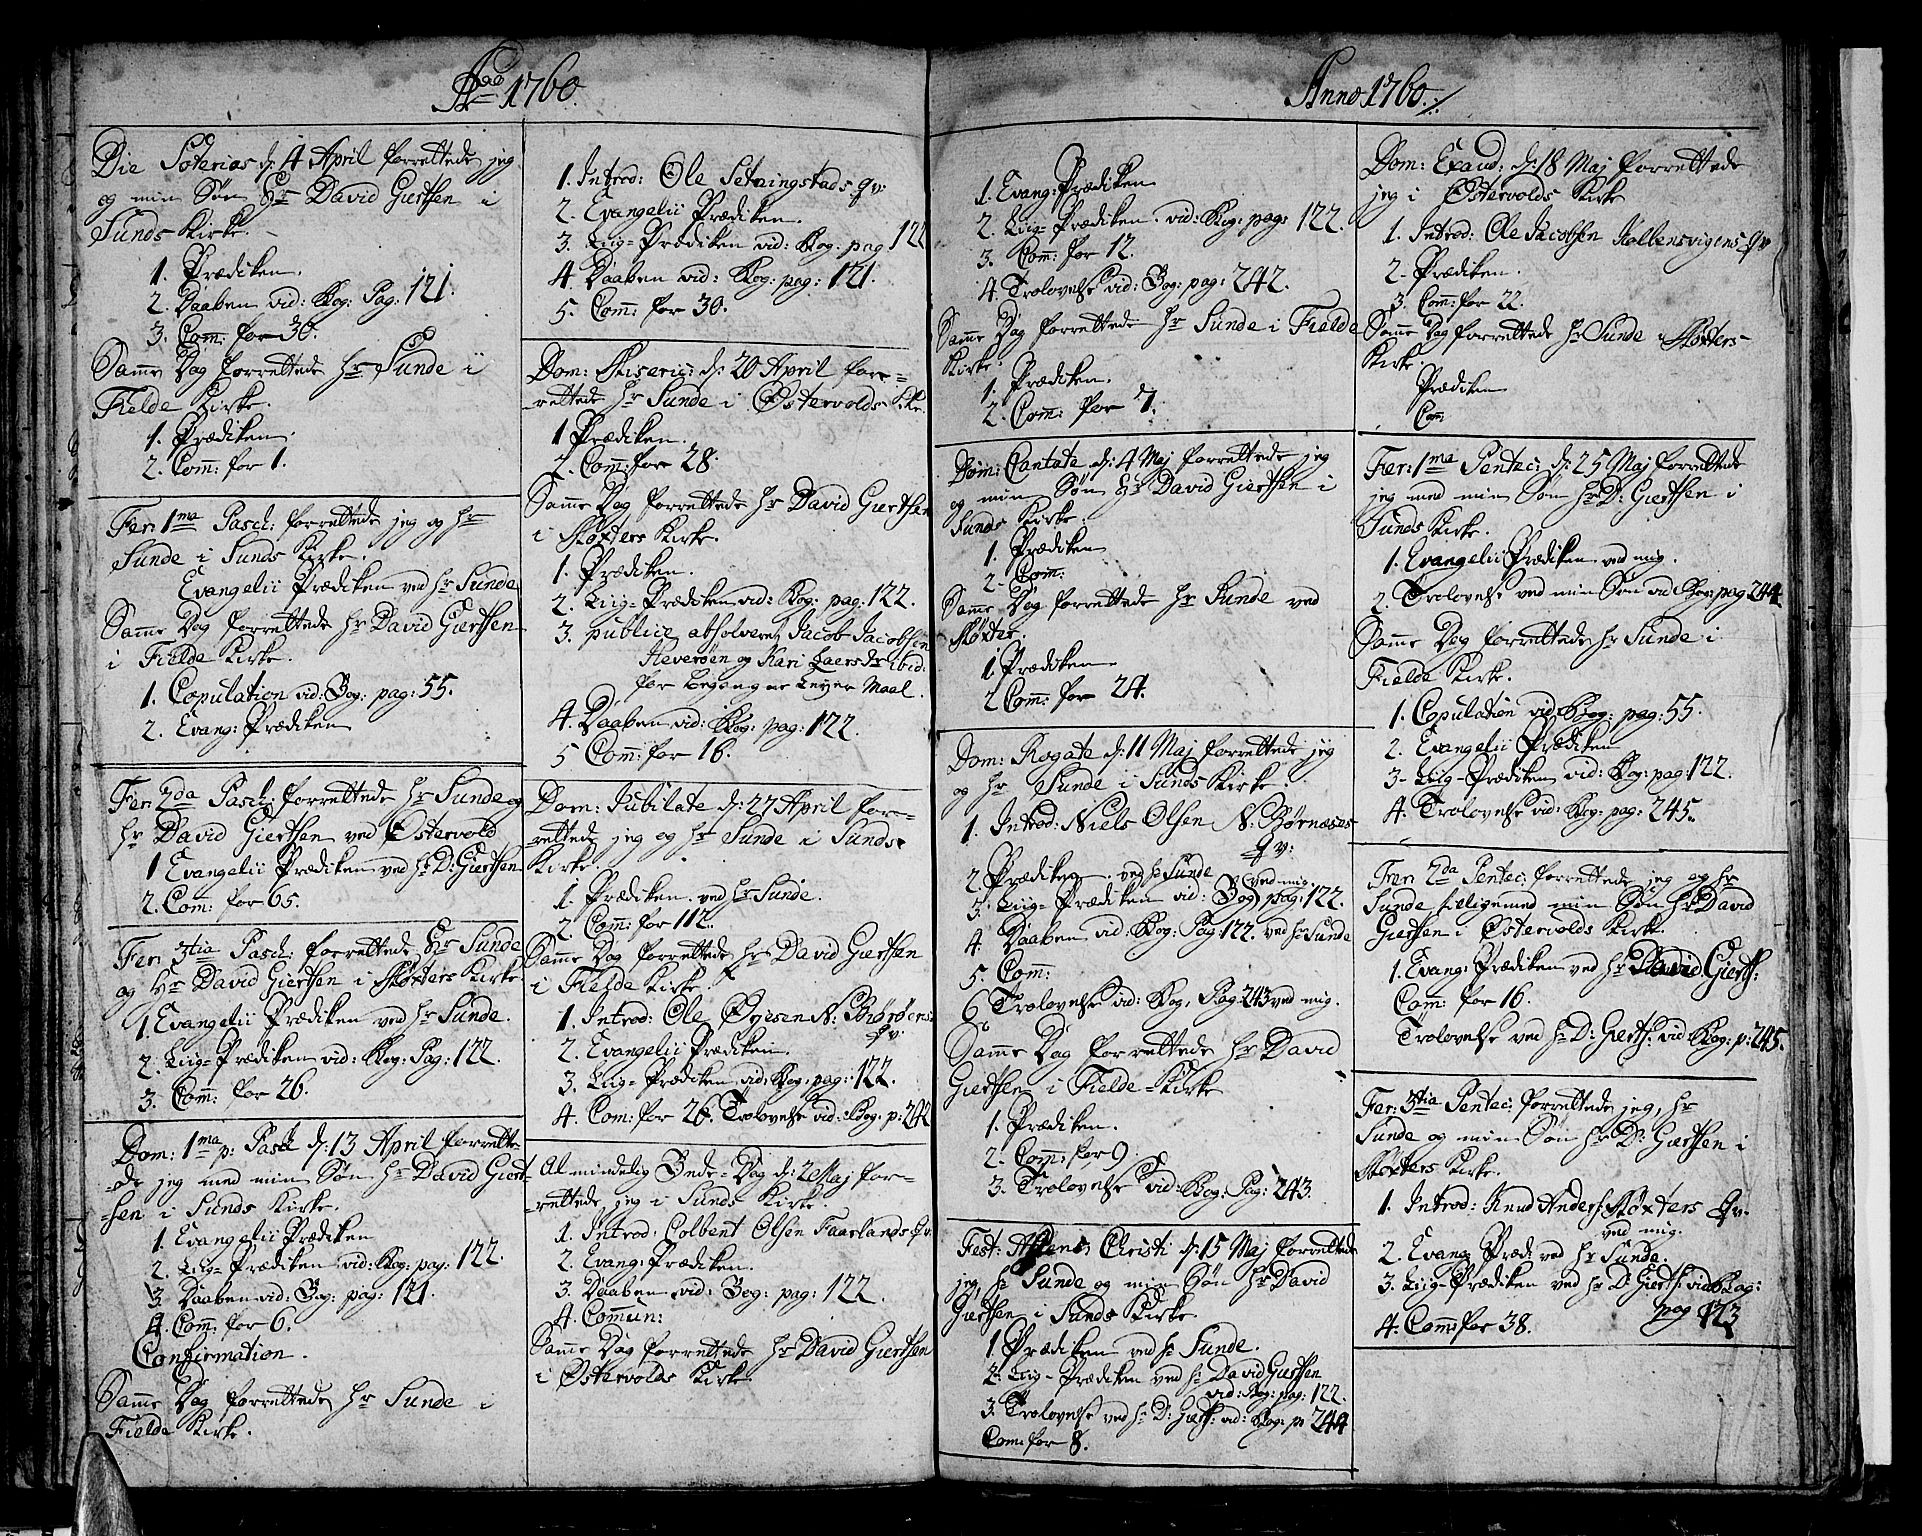 Aõ 1760.
Die Soterias d: 4 April forrettede jeg
og min Søn Hr David Giertsen i
Sunds Kirke.
1. Prædiken.
2. Daaben vid: Bog: Pag: 121.
3. Com: for 30.
Samme Dag forrettede Hr Sunde i
Fielde Kirke.
1. Prædiken.
2. Com: for 1.
Fer: 1ma Pasch: forrettede jeg og Hr
Sunde i Sunds Kirke.
Evangelii Prædiken ved Hr Sunde
Samme Dag forrettede Hr David Giertsen
i Fielde Kirke.
1. Copulation vid: Bog: pag: 55.
2. Evang: Prædiken
Fer: 2da Pasch: forrettede Hr Sunde og
Hr David Giertsen ved Østervold
1 Evangelii Prædiken ved Hr D: Giertsen
2. Com: for 65.
Fer: 3tia Pasch: forrettede Hr Sunde
og Hr David Giertsen i Møxters Kirke
1. Evangelii Prædiken ved Hr Sunde.
2. Liig-Prædiken vid: Bog: Pag: 122.
3. Com: for 26.
Dom: 1ma p: Pasch d: 13 April forrette
-de jeg med min Søn Hr David Giert-
-sen i Sunds Kirke.
1. Evangelii Prædiken
2. Liig-Prædiken vid: Bog: pag: 122.
3. Daaben vid: Bog: pag: 121.
4. Com: for 6.
Confirmation.
Samme Dag forrettede Hr Sunde i
Fielde Kirke.
1. Introd: Ole Qv:
2. Evangelii Prædiken.
3. Liig-Prædiken vid: Bog: pag 122
4. Daaben vid: Bog: pag: 121.
5. Com: for 30.
Dom: Miseric: d: 20 April for-
-rettede Hr Sunde i Østervolds Kke.
1 Prædiken.
2. Com: for 28.
Samme Dag forrettede Hr David Giertsen
i Møxters Kirke.
1. Prædiken.
2. Liig-Prædiken vid: Bog: pag: 122.
3. publice absolveret Jacob Jacobsen
Heverøen og Kari Laersdr ibid:
for begangne Leyer Maal.
4. Daaben vid: Bog: pag: 122.
5 Com: for 16.
Dom: Jubilate d: 27 April for-
-rettede jeg og Hr Sunde i Sunds
Kirke.
1. Prædiken ved Hr Sunde.
2. Com: for 112.
Samme Dag forrettede Hr David Giertsen
i Fielde Kirke.
1. Introd: Ole N:
Qv:
2. Evangelii Prædiken.
3. Liig-Prædiken vid: Bog: pag: 122.
4. Com: for 26. Trolovelse vid: Bog: p: 242
Almindelig Bede-Dag d: 2 Maj for-
-rettede jeg i Sunds Kirke.
1. Introd: Colbent Olsen Faarlands Qv:
2. Evang: Prædiken.
3. Daaben vid: Bog: pag: 122.
4. Commun:
Samme Dag forrettede Hr David Giertsen
i Østervolds Kirke
Anno 1760.
1. Evang: Prædiken
2. Liig-Prædiken vid: Bog: pag: 122.
3. Com: for 12.
4. Trolovelse vid: Bog: pag: 242.
Samme Dag forrettede Hr Sunde i Fielde
Kirke.
1. Prædiken.
2. Com: for 7.
Dom: Cantate d: 4 Maj forrettede jeg
og min Søn Hr David Giertsen i
Sunds Kirke.
1. Prædiken
2. Com:
Samme Dag forrettede Hr Sunde ved
Møxter.
1. Prædiken
2 Com: for 24.
Dom: Rogate d: 11 Maj forrettede jeg
og Hr Sunde i Sunds Kirke.
1. Introd: Niels Olsen N: Børnæses
Qv:
2. Prædiken ved Hr Sunde
ved mig
3. Liig-Prædiken vid: Bog pag: 122.
4 Daaben vid: Bog: Pag: 122. ved Hr Sunde
5. Com:
6 Trolovelse vid: Bog, Pag: 243 ved mig.
Samme Dag forrettede Hr David
Giertsen i Fielde-Kirke
1. Prædiken.
2. Com: for 9.
3. Trolovelse vid: Bog: Pag: 243.
Fest: Christi d: 15 Maj forrettede
jeg, Hr Sunde og min Søn Hr David
Giertsen i Sunds Kirke.
1. Prædiken ved Hr Sunde.
2. Liig-Prædiken ved Hr David Giertsen
vid: Bog: pag: 122.
3. Trolovelse ved Hr D: Giertsen: vid: Bog: p: 244
Com: for 8.
Dom: Exaud: d: 18 Maj forrettede
jeg i Østervolds Kirke
1. Introd: Ole Jacobsen Qv
2. Prædiken.
3. Com: for 22.
Samme Dag forrettede Hr Sunde i Møxters-
Kirke
Prædiken
Com:
Fer: 1ma Pentec: d: 25 Maj forrettede
jeg med min Søn Hr D: Giertsen i
Sunds Kirke.
1. Evangelii Prædiken ved mig.
2. Trolovelse ved min Søn vid Bog: pag 244
Samme Dag forrettede Hr Sunde i
Fielde Kirke.
1. Copulation vid: Bog: pag: 55.
2. Evangelii Prædiken
3. Liig-Prædiken vid: Bog: pag: 122.
4. Trolovelse vid: Bog: pag: 245.
Fer: 2da Pentec: forrettede jeg og Hr
Sunde tilligemed min Søn Hr David
Giertsen i Østervolds Kirke.
1. Evang: Prædiken ved Hr David Gierts:
Com: for 16.
Trolovelse ved Hr D: Gierts: vid Bog: p: 245.
Fer: 3tia Pentec: forrettede jeg, Hr
Sunde og min Søn Hr D: Giertsen i
Møxters Kirke.
1. Introd: Knud Anders: Møxters Qv.
ved mig.
2. Evang: Præd: ved Hr Sunde.
3. Liig-Prædiken ved Hr D: Gierts: vid Bog:
pag 123
4. Com: for 38.